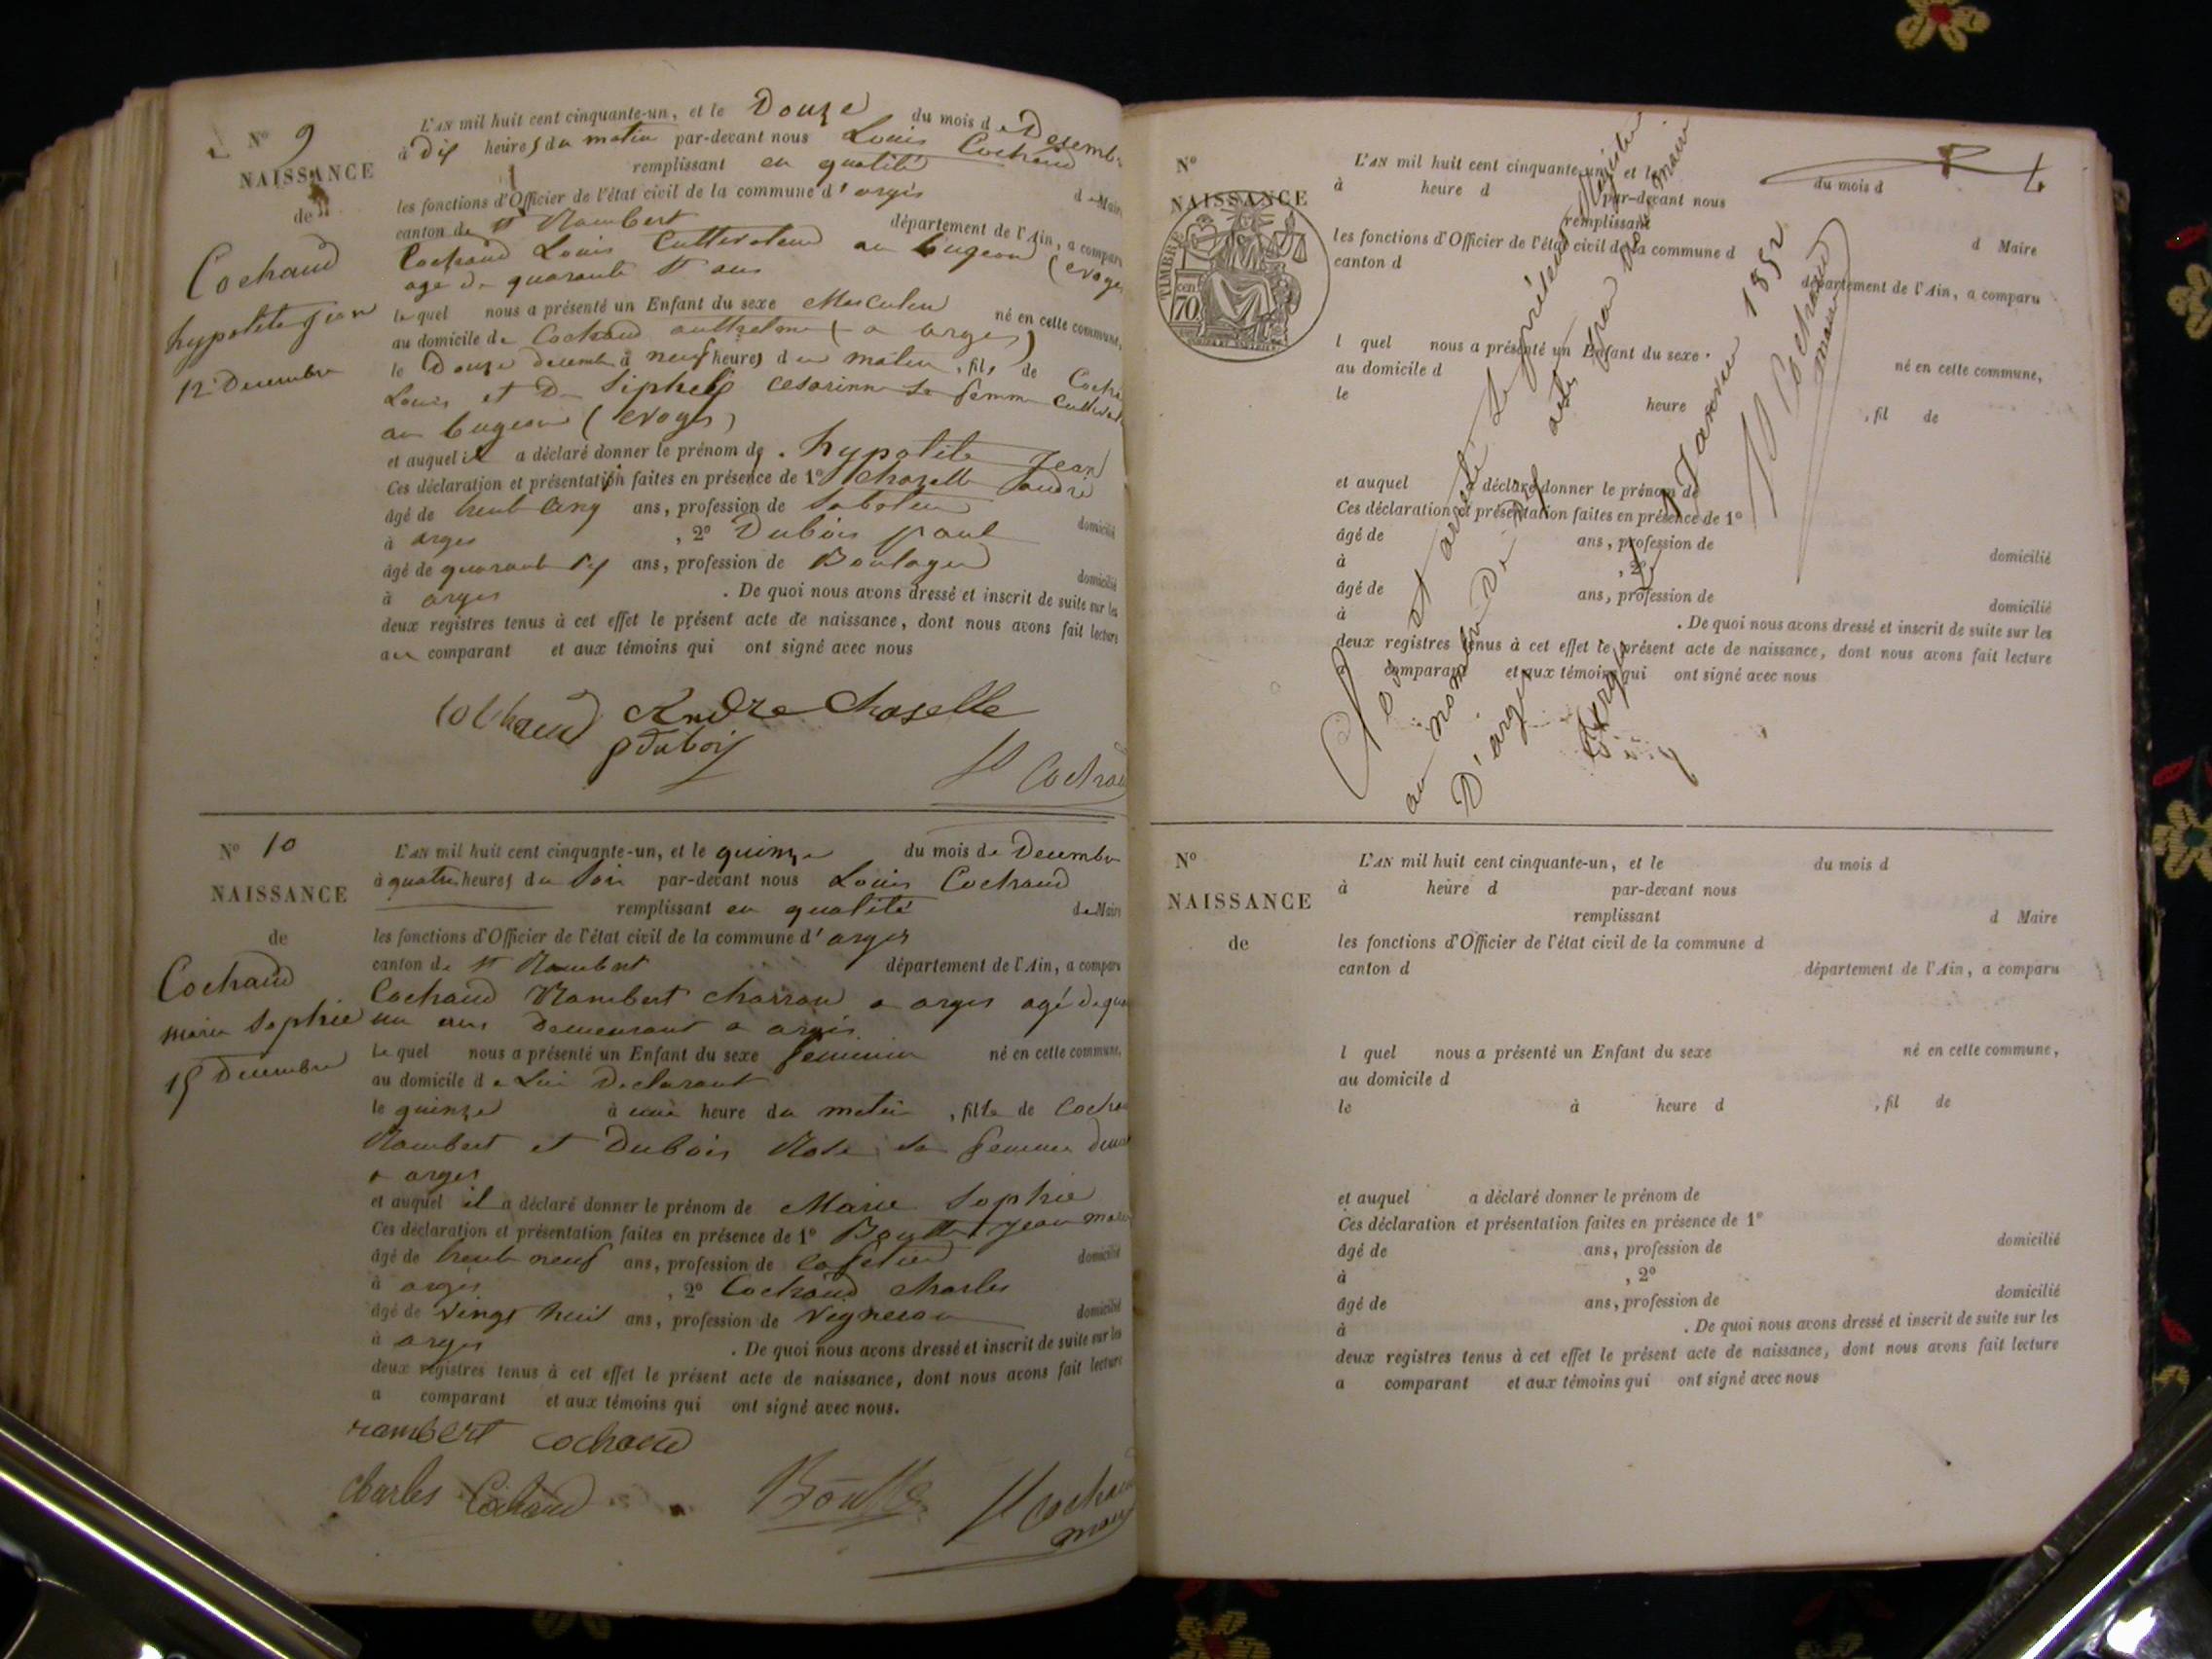 N° 9
NAISSANCE
de
Cochaud
hypolite jean
12 Decembre
L'AN mil huit cent cinquante-un, et le Douze du mois de Desembre
à Dix heures du matin par-devant nous Louis Cochaud
remplissant en qualité de Maire
les fonctions d'Officier de l'état civil de la commune d'argis
canton de st Rambert département de l'Ain, a comparu
Cochaud Louis Cultivateur au bugeon (evoges
age de quarante ans
le quel nous a présenté un Enfant du sexe Masculin né en cette commune,
au domicile de Cochaud anthelme (a arges)
le Douze decemb à neuf heures du matin, fils de Cocha
Louis et De cesarinne sa femme Cultivat
au bugeon (evoges)
et auquel il a déclaré donner le prénom de hypolite Jean
Ces déclaration et présentation faites en présence de 1° Chazelle andré
âgé de trente cinq ans, profession de Sabotier domicilié
à arges , 2° Dubois paul
âgé de quarante ans, profession de Boulager domicilié
à arges . De quoi nous avons dressé et inscrit de suite sur les
deux registres tenus à cet effet le présent acte de naissance, dont nous avons fait lecture
au comparant et aux témoins qui ont signé avec nous
Cochaud Andre Chaselle
pdubois
Ls Cochaud
N° 10
NAISSANCE
de
Cochaud
marie Sophie
15 Decembre
L'AN mil huit cent cinquante-un, et le quinze du mois de Decembre
à quatre heures du Soir par-devant nous Louis Cochaud
remplissant en qualité de Maire
les fonctions d'Officier de l'état civil de la commune d'arges
canton de st Rambert département de l'Ain, a comparu
Cochaud Rambert charron a arges agé de qua
un ans Demeurant a argis
le quel nous a présenté un Enfant du sexe feminin né en cette commune,
au domicile de Lui Declarant
le quinze à une heure du matin , fille de Cocha
Rambert et Dubois Rose sa femme
a arges
et auquel il a déclaré donner le prénom de Marie Sophie
Ces déclaration et présentation faites en présence de 1° Jean
âgé de trente neuf ans, profession de cafetier domicilié
à arges , 2° Cochaud charles
âgé de vingt huit ans, profession de vigneron domicilié
à arges . De quoi nous avons dressé et inscrit de suite sur les
deux registres tenus à cet effet le présent acte de naissance, dont nous avons fait lecture
a comparant et aux témoins qui ont signé avec nous.
rambert cochaud
charles Cochaud
Ls Cochaud
maire
N°
NAISSANCE
TIMBRE
70 cen
L'AN mil huit cent cinquante-un, et le du mois d
à heure d par-devant nous
remplissant d Maire
les fonctions d'Officier de l'état civil de la commune d
canton d département de l'Ain, a comparu
l quel nous a présenté un Enfant du sexe
au domicile d né en cette commune,
le heure , fil de
et auquel a déclaré donner le prénom de
Ces déclaration et présentation faites en présence de 1°
âgé de ans, profession de
à , 2° domicilié
âgé de ans, profession de
à domicilié
. De quoi nous avons dressé et inscrit de suite sur les
deux registres tenus à cet effet le présent acte de naissance, dont nous avons fait lecture
comparant et aux témoins qui ont signé avec nous
Clos et arrêté le présent Registre
au nombre de Dix acte par nous maire
D'arges
Arges le 1 Janvier 1852
Ls Cochaud
maire
N°
NAISSANCE
de
L'AN mil huit cent cinquante-un, et le du mois d
à heure d par-devant nous
remplissant d Maire
les fonctions d'Officier de l'état civil de la commune d
canton d département de l'Ain, a comparu
l quel nous a présenté un Enfant du sexe né en cette commune,
au domicile d
le à heure d , fil de
et auquel a déclaré donner le prénom de
Ces déclaration et présentation faites en présence de 1°
âgé de ans, profession de domicilié
à , 2°
âgé de ans, profession de domicilié
à . De quoi nous avons dressé et inscrit de suite sur les
deux registres tenus à cet effet le présent acte de naissance, dont nous avons fait lecture
a comparant et aux témoins qui ont signé avec nous